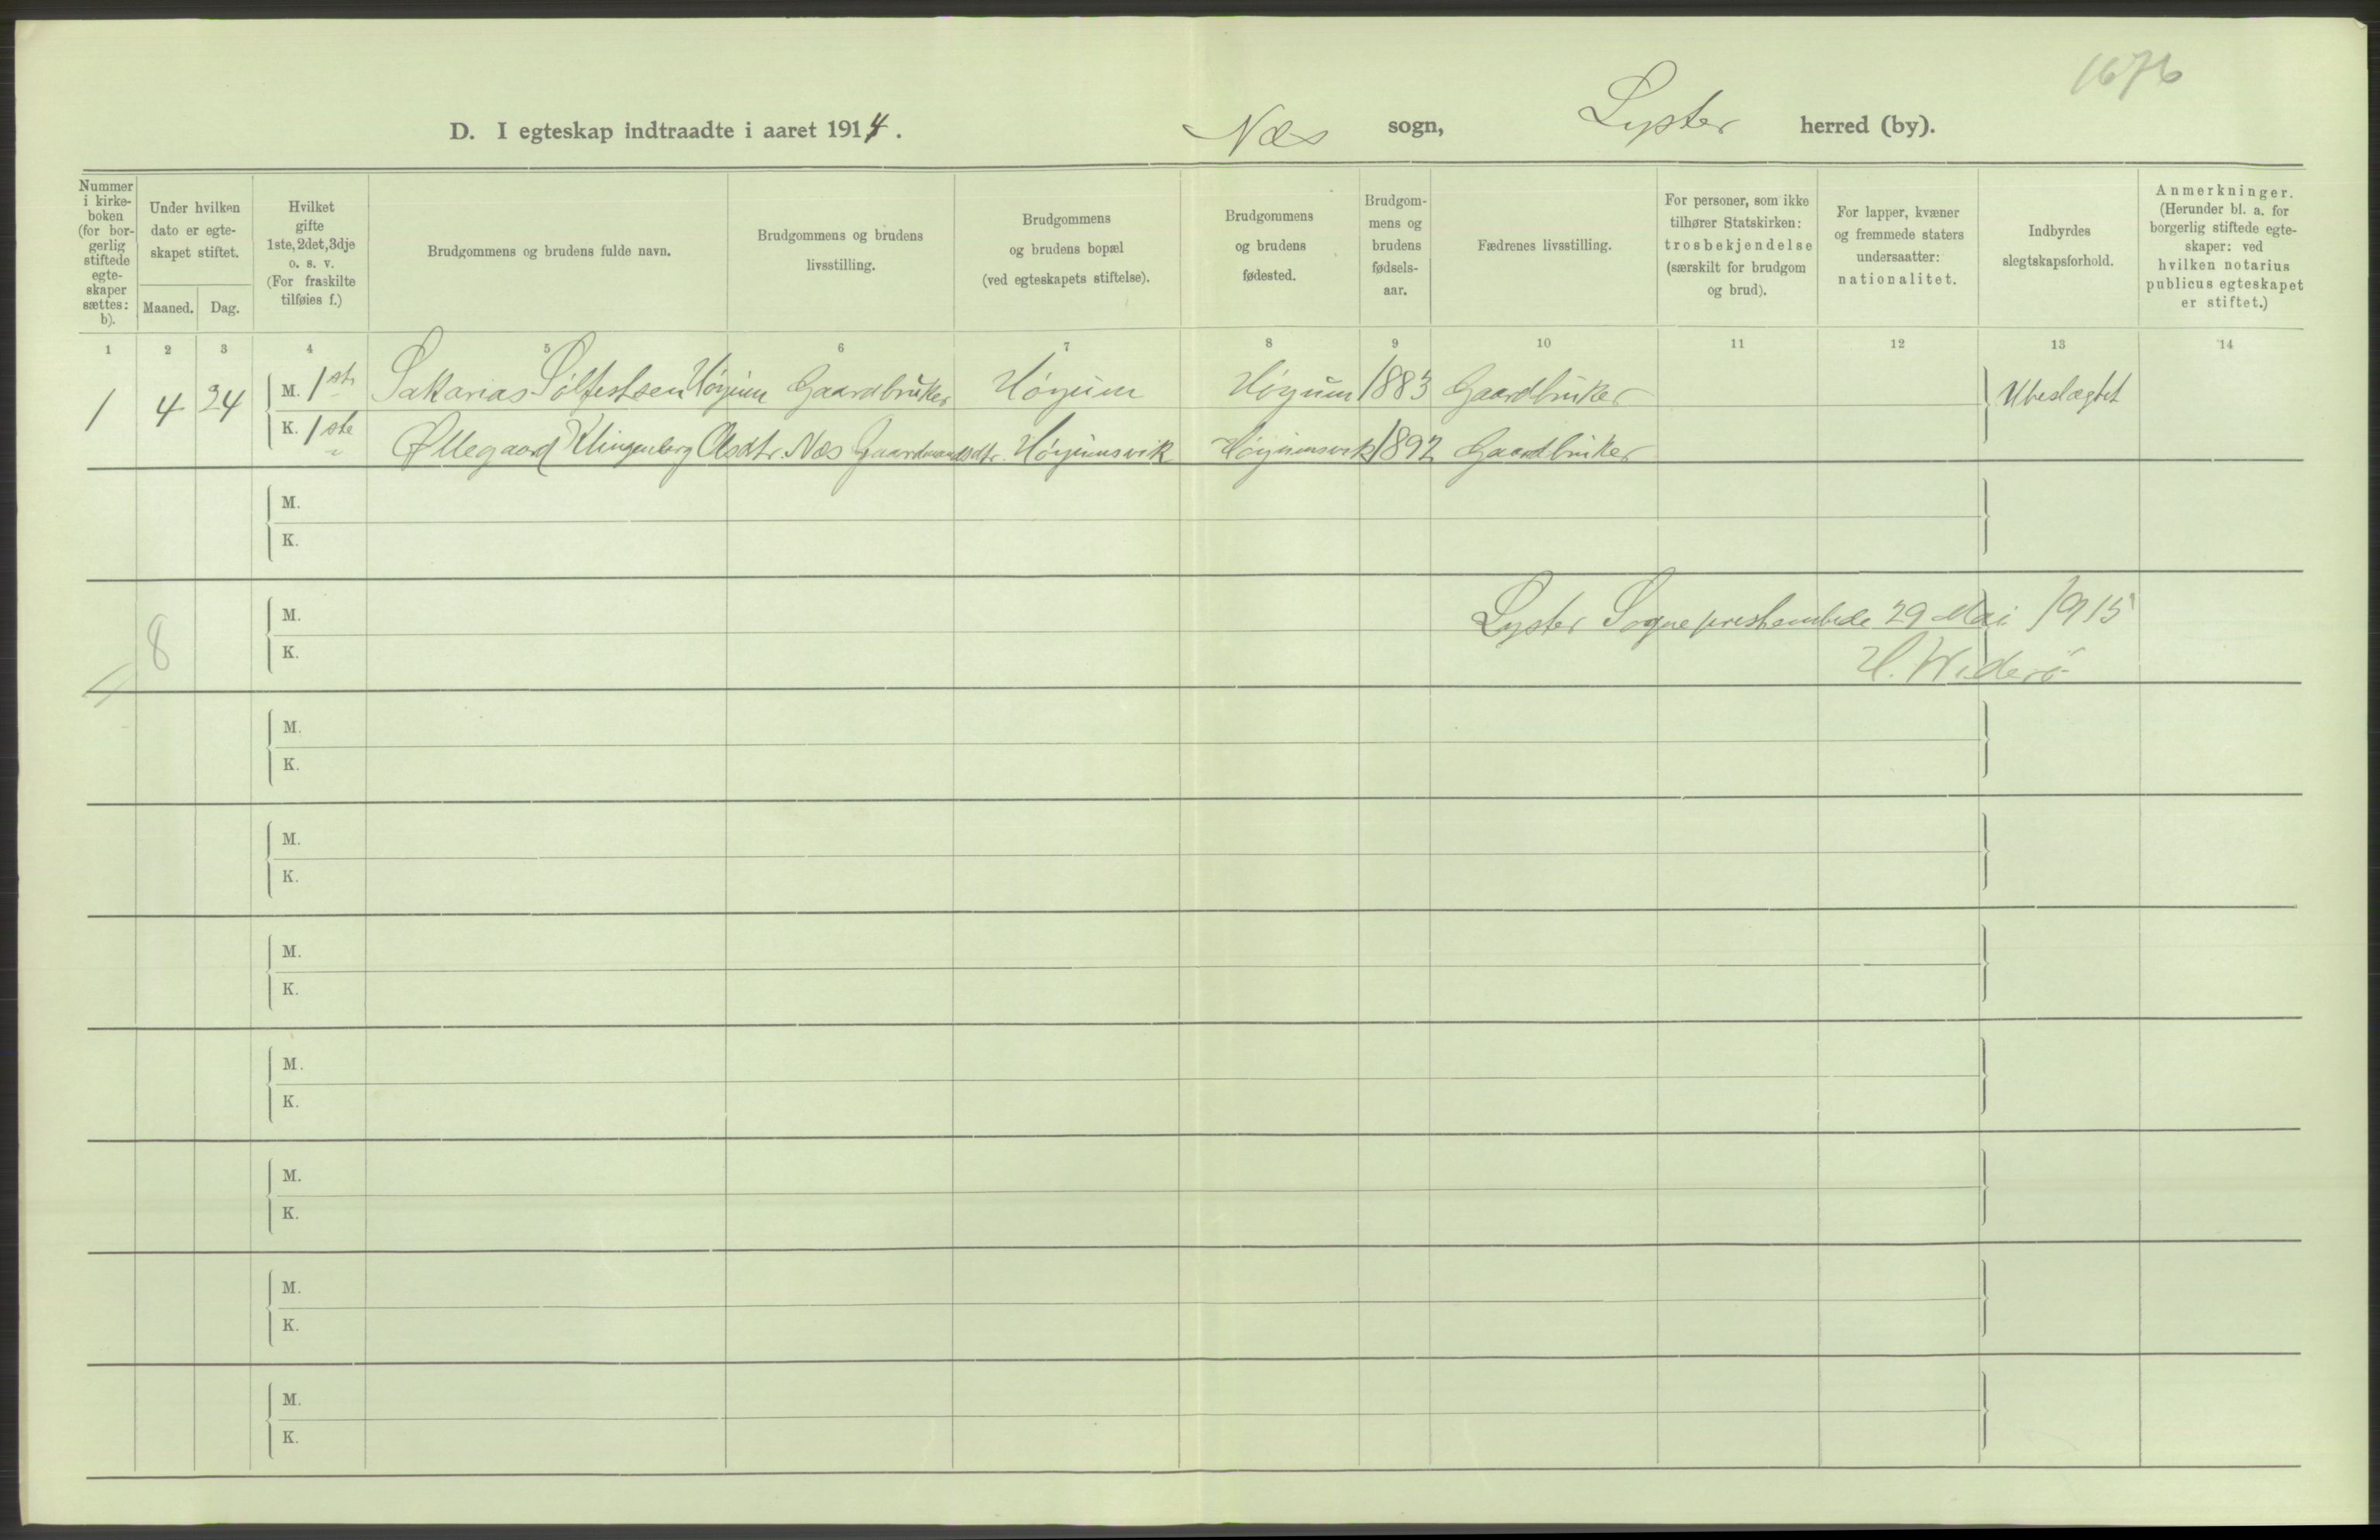 1676
D. I egteskap indtraadte i aaret 1914. Næs sogn, Lyster herred (by).
Nummer i kirke-boken (for bor-gerlig stiftede egte-skaper sættes: b).
Under hvilken dato er egte-skapet stiftet.
Maaned. Dag.
Hvilket gifte 1ste, 2det, 3dje o. s. v. (For fraskilte tilføies f.)
Brudgommens og brudens fulde navn.
Brudgommens og brudens livsstilling.
Brudgommens og brudens bopæl (ved egteskapets stiftelse).
Brudgommens og brudens fødested.
Brudgom-mens og brudens fødsels-aar.
Fædrenes livsstilling.
For personer, som ikke tilhører Statskirken: trosbekjendelse (særskilt for brudgom og brud).
For lapper, kvæner og fremmede staters undersaatter: nationalitet.
Indbyrdes slegtskapsforhold.
Anmerkninger. (Herunder bl. a. for borgerlig stiftede egte-skaper: ved hvilken notarius publicus egteskapet er stiftet.)
1 2 3 4 5 6 7 8 9 10 11 12 13 14
1 4 24 M. 1ste Sakarias Sølfestsen Høyum Gaardbruker Høyum Høyum 1883 Gaardbruker Ubeslægtet
K. 1ste Øllegaard Klingenberg Olsdtr. Næs Gaardmandsdtr. Høyumsvik Høyumsvik 1892 Gaardbruker
M.
K.
M. Lyster Sogneprestembede 29 Mai 1915
8
K. H. Widerö
M.
K.
M.
K.
M.
K.
M.
K.
M.
K.
M.
K.
M.
K.